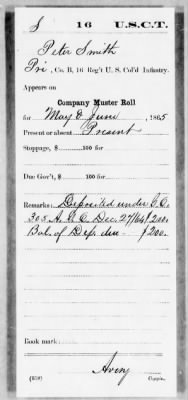 S 16 U.S.C.T.
Peter Smith
Pvt, Co. B, 16 Reg't U. S. Col'd Infantry.
Appears on
Company Muster Roll
for May & June, 1865
Present or absent Present
Stoppage, $ 100 for
Due Gov't, $ 100 for
Remarks: Deposited under G.O.
305 A.G.O. Dec. 27/64 $200.
Bal. of Dep. due $200.
Book mark:
Avery
(358) Copyist.